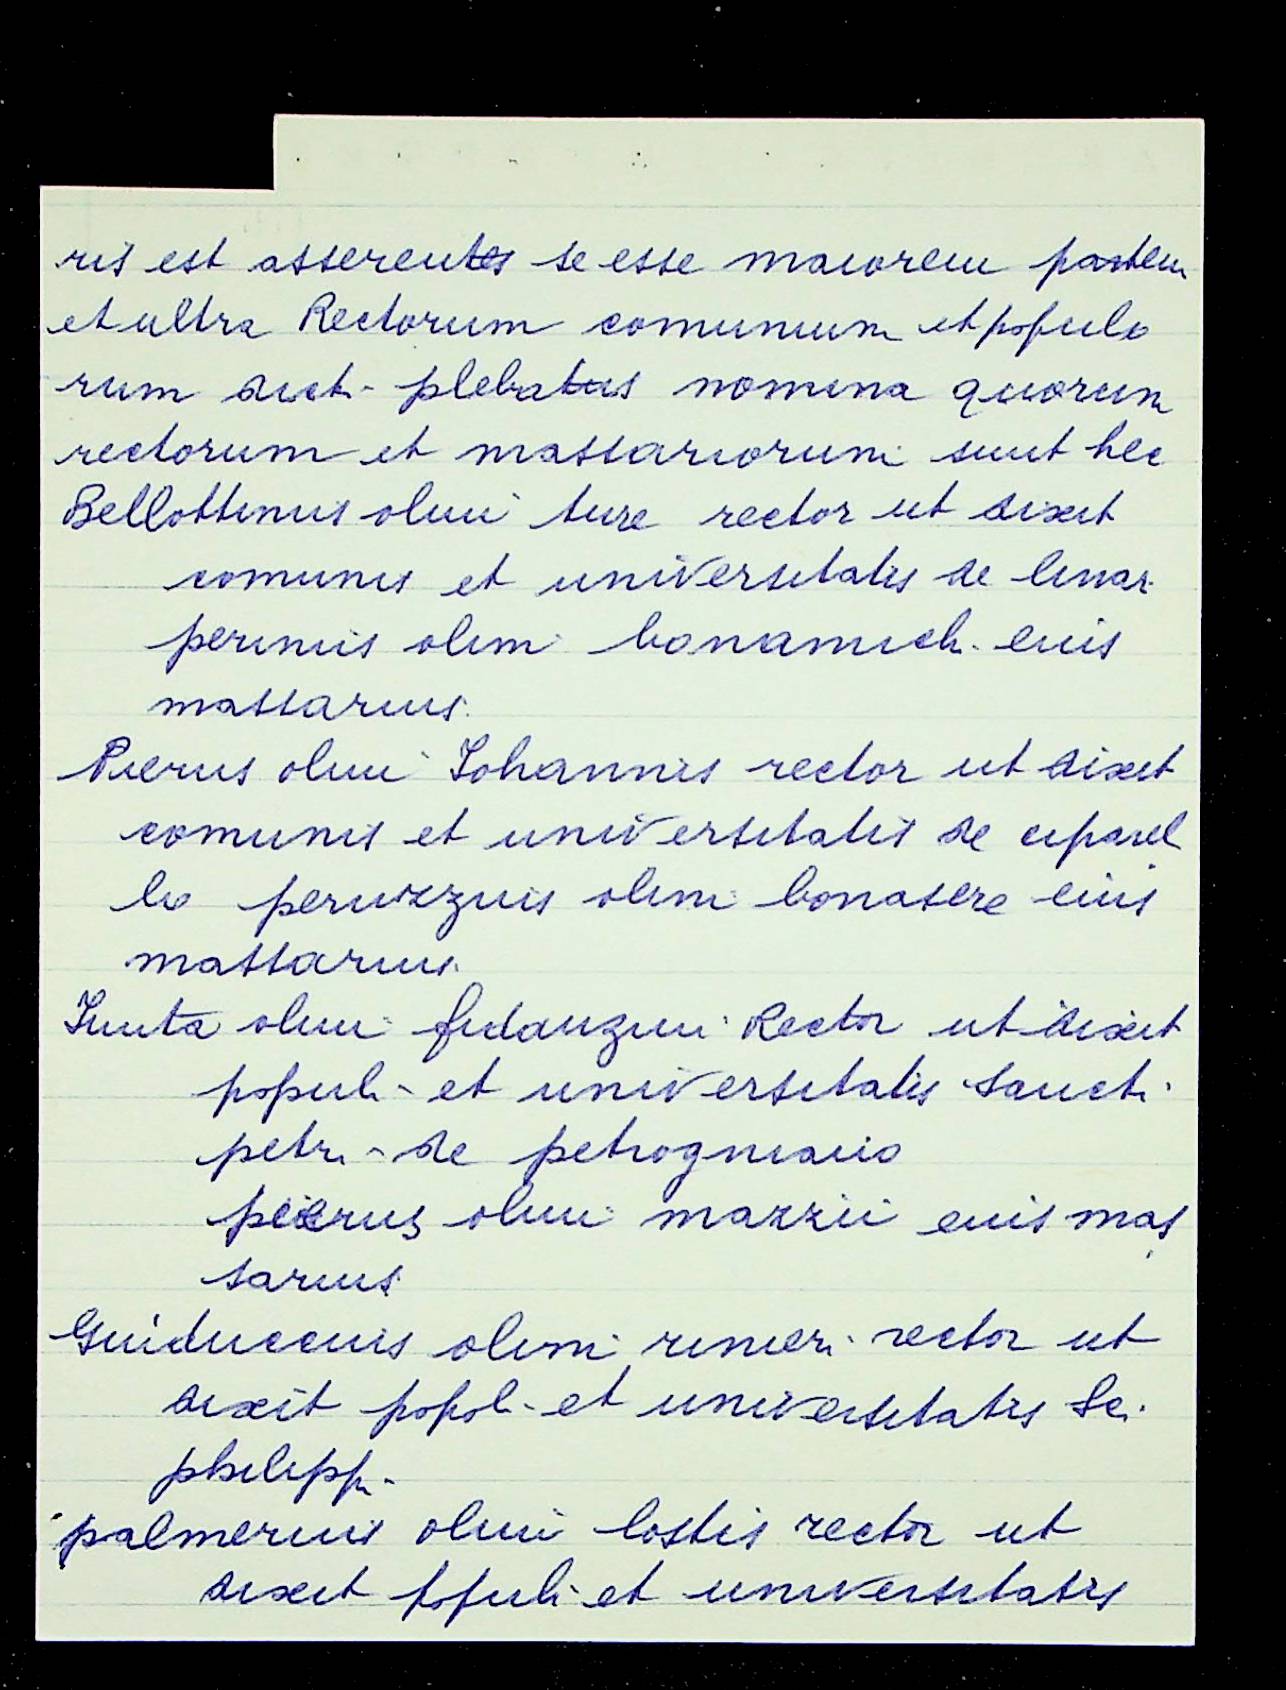 ris est asserentes se esse maiorem partem
et ultra Rectorum comunium et populo
rum dicti plebatus nomina quorum
rectorum et massariorum sunt hec
Bellottinus olim ture rector ut dixit
comunis et universitatis de linar
perinus olim bonamich. eius
massarius.
Pierus olim Johannis rector ut dixit
comunis et universitatis de ciparel
lo peruzzus olim bonasere eius
massarius.
Iunta olim fidanzini Rector ut dixit
populi et universitatis sancti
petri de petrogniano
pierus olim mazzii eius mas
sarius
Guiduccius olim rineri rector ut
dixit popoli et universitatis Sci.
philippi
palmerius olim lostis rector ut
dixit populi et universitatis